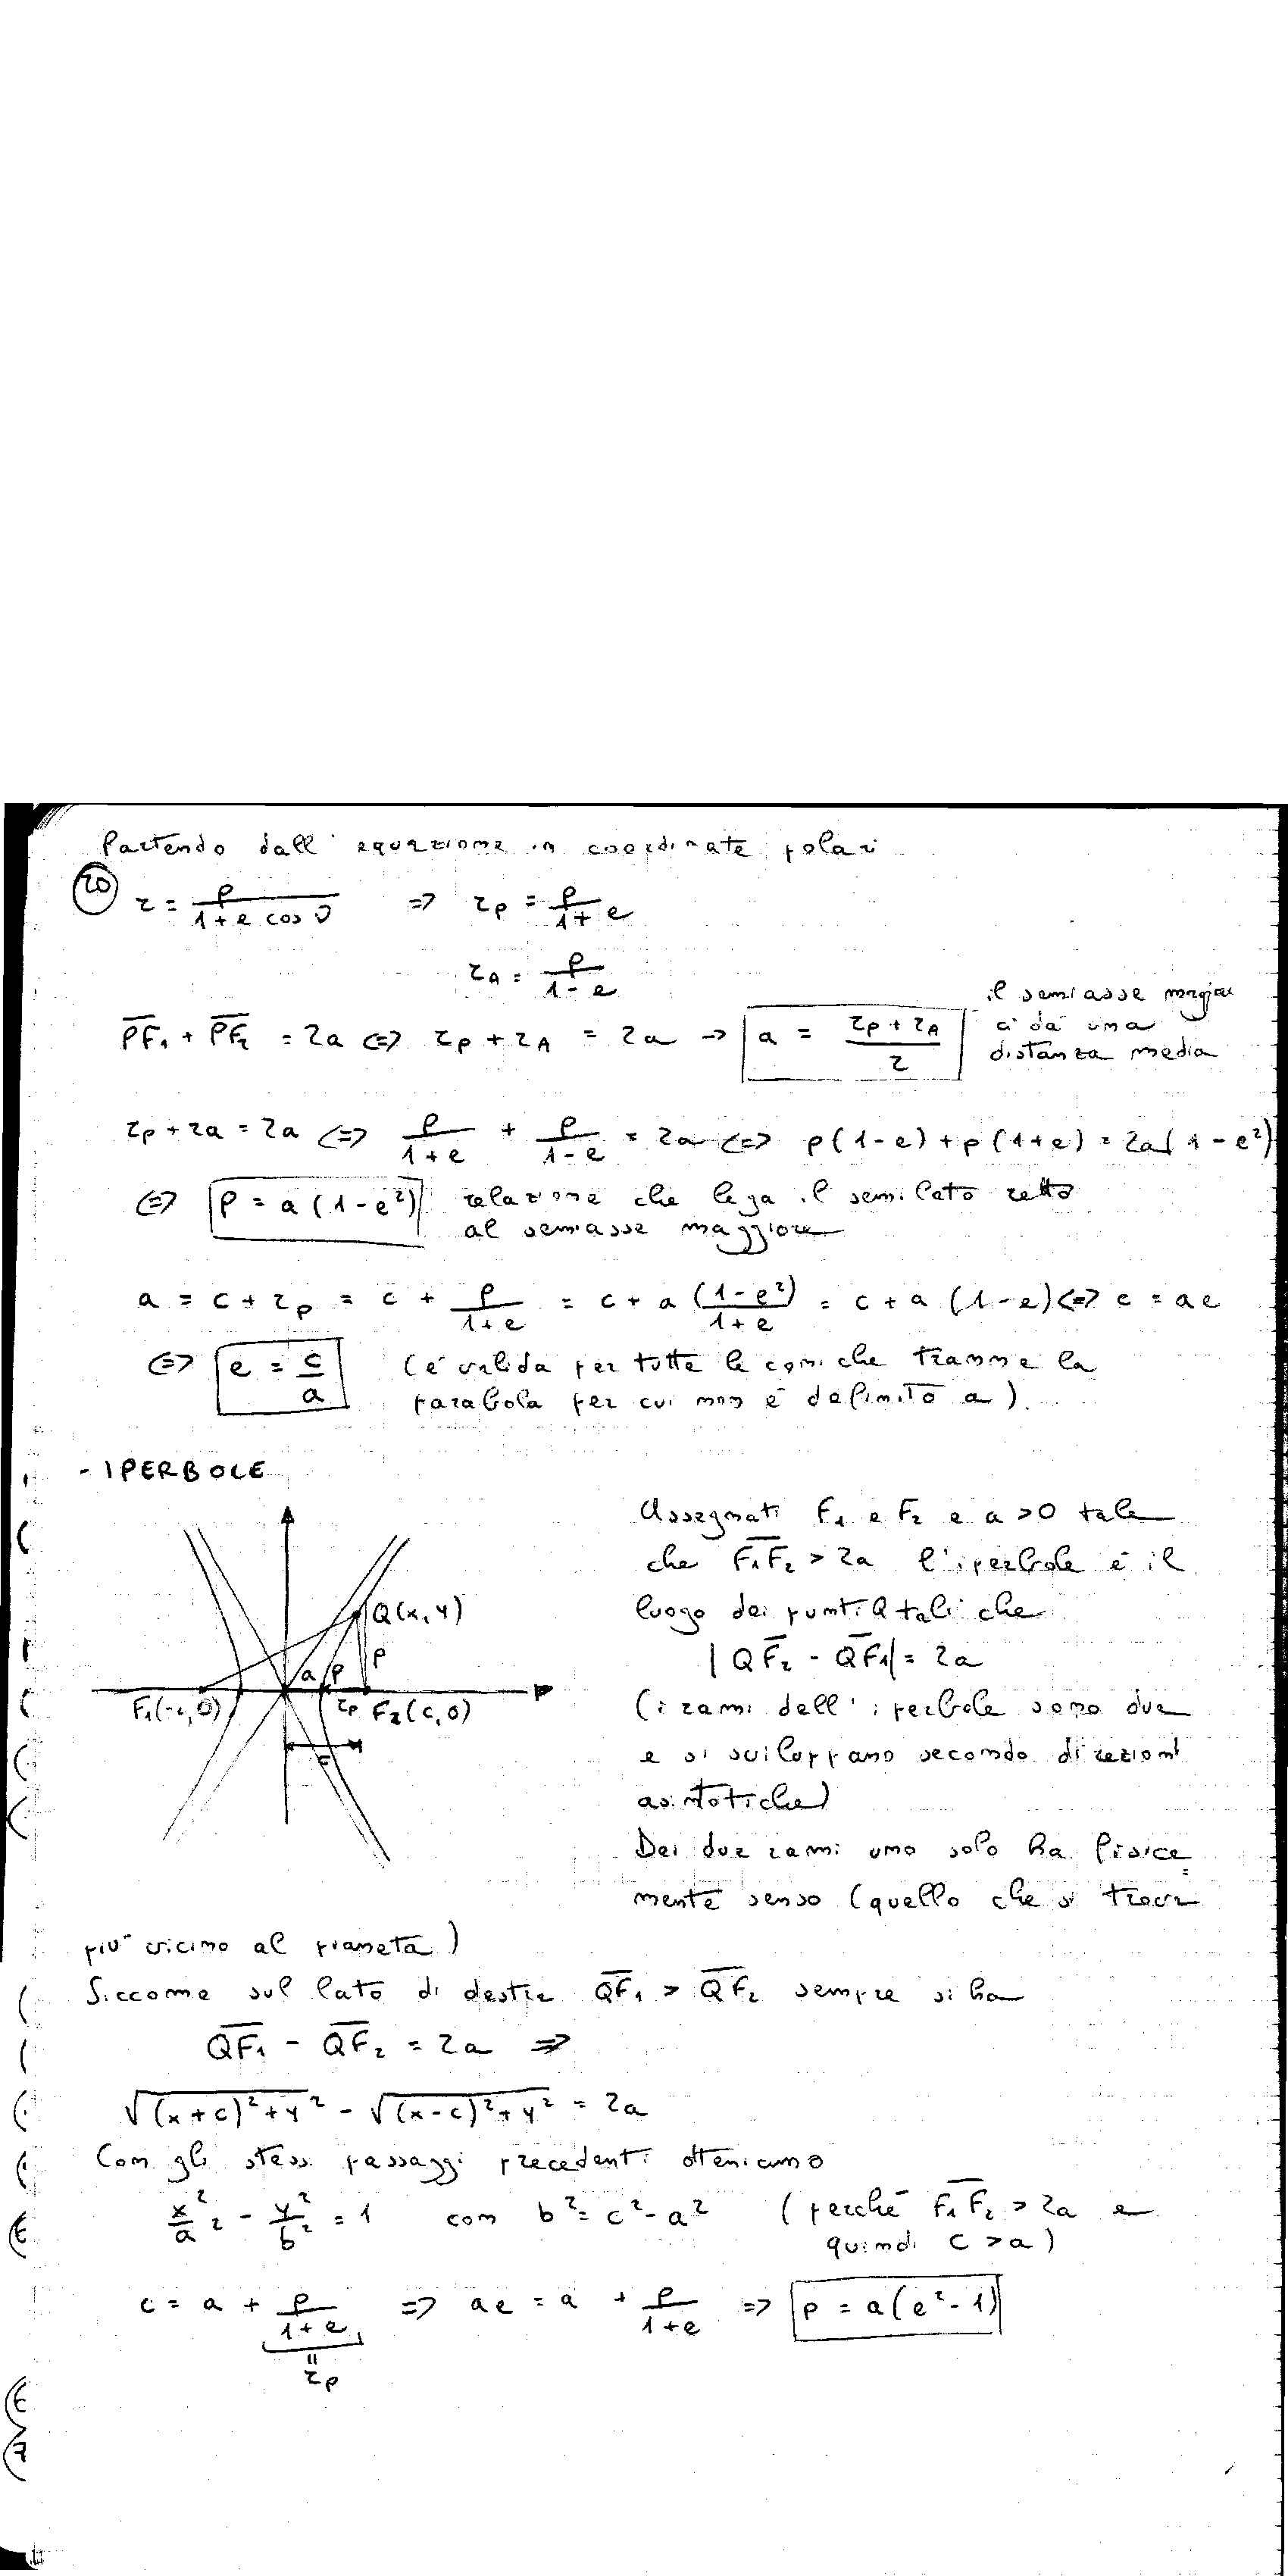 Partendo dall'equazione in coordinate polari
20 r = p / (1 + e cos ϑ) => rp = p / (1 + e)
rA = p / (1 - e)
PF1 + PF2 = 2a <=> rp + rA = 2a → a = (rp + rA) / 2
il semiasse maggiore
ci dà una
distanza media
rp + ra = 2a <=> p / (1 + e) + p / (1 - e) = 2a <=> p(1-e) + p(1+e) = 2a(1-e²)
<=> p = a(1-e²) relazione che lega il semilato retto
al semiasse maggiore
a = c + rp = c + p / (1 + e) = c + a (1-e²) / (1 + e) = c + a (1-e) <=> c = ae
<=> e = c / a (è valida per tutte le coniche tranne la
parabola per cui non è definito a).
- IPERBOLE
Q(x,y)
p
a
p
F1(-c,0)
rp
F2(c,0)
c
Assegnati F1 e F2 e a > 0 tale
che F1F2 > 2a l'iperbole è il
luogo dei punti Q tali che
|QF2 - QF1| = 2a
(i rami dell'iperbole sono due
e si sviluppano secondo direzioni
asintotiche)
Dei due rami uno solo ha fisica=
mente senso (quello che si trova
più vicino al pianeta)
Siccome sul lato di destra QF1 > QF2 sempre si ha
QF1 - QF2 = 2a =>
√(x+c)²+y² - √(x-c)²+y² = 2a
Con gli stessi passaggi precedenti otteniamo
x²/a² - y²/b² = 1 con b² = c² - a² (perché F1F2 > 2a e
quindi c > a)
c = a + p / (1 + e) => ae = a + p / (1 + e) => p = a(e²-1)
= rp